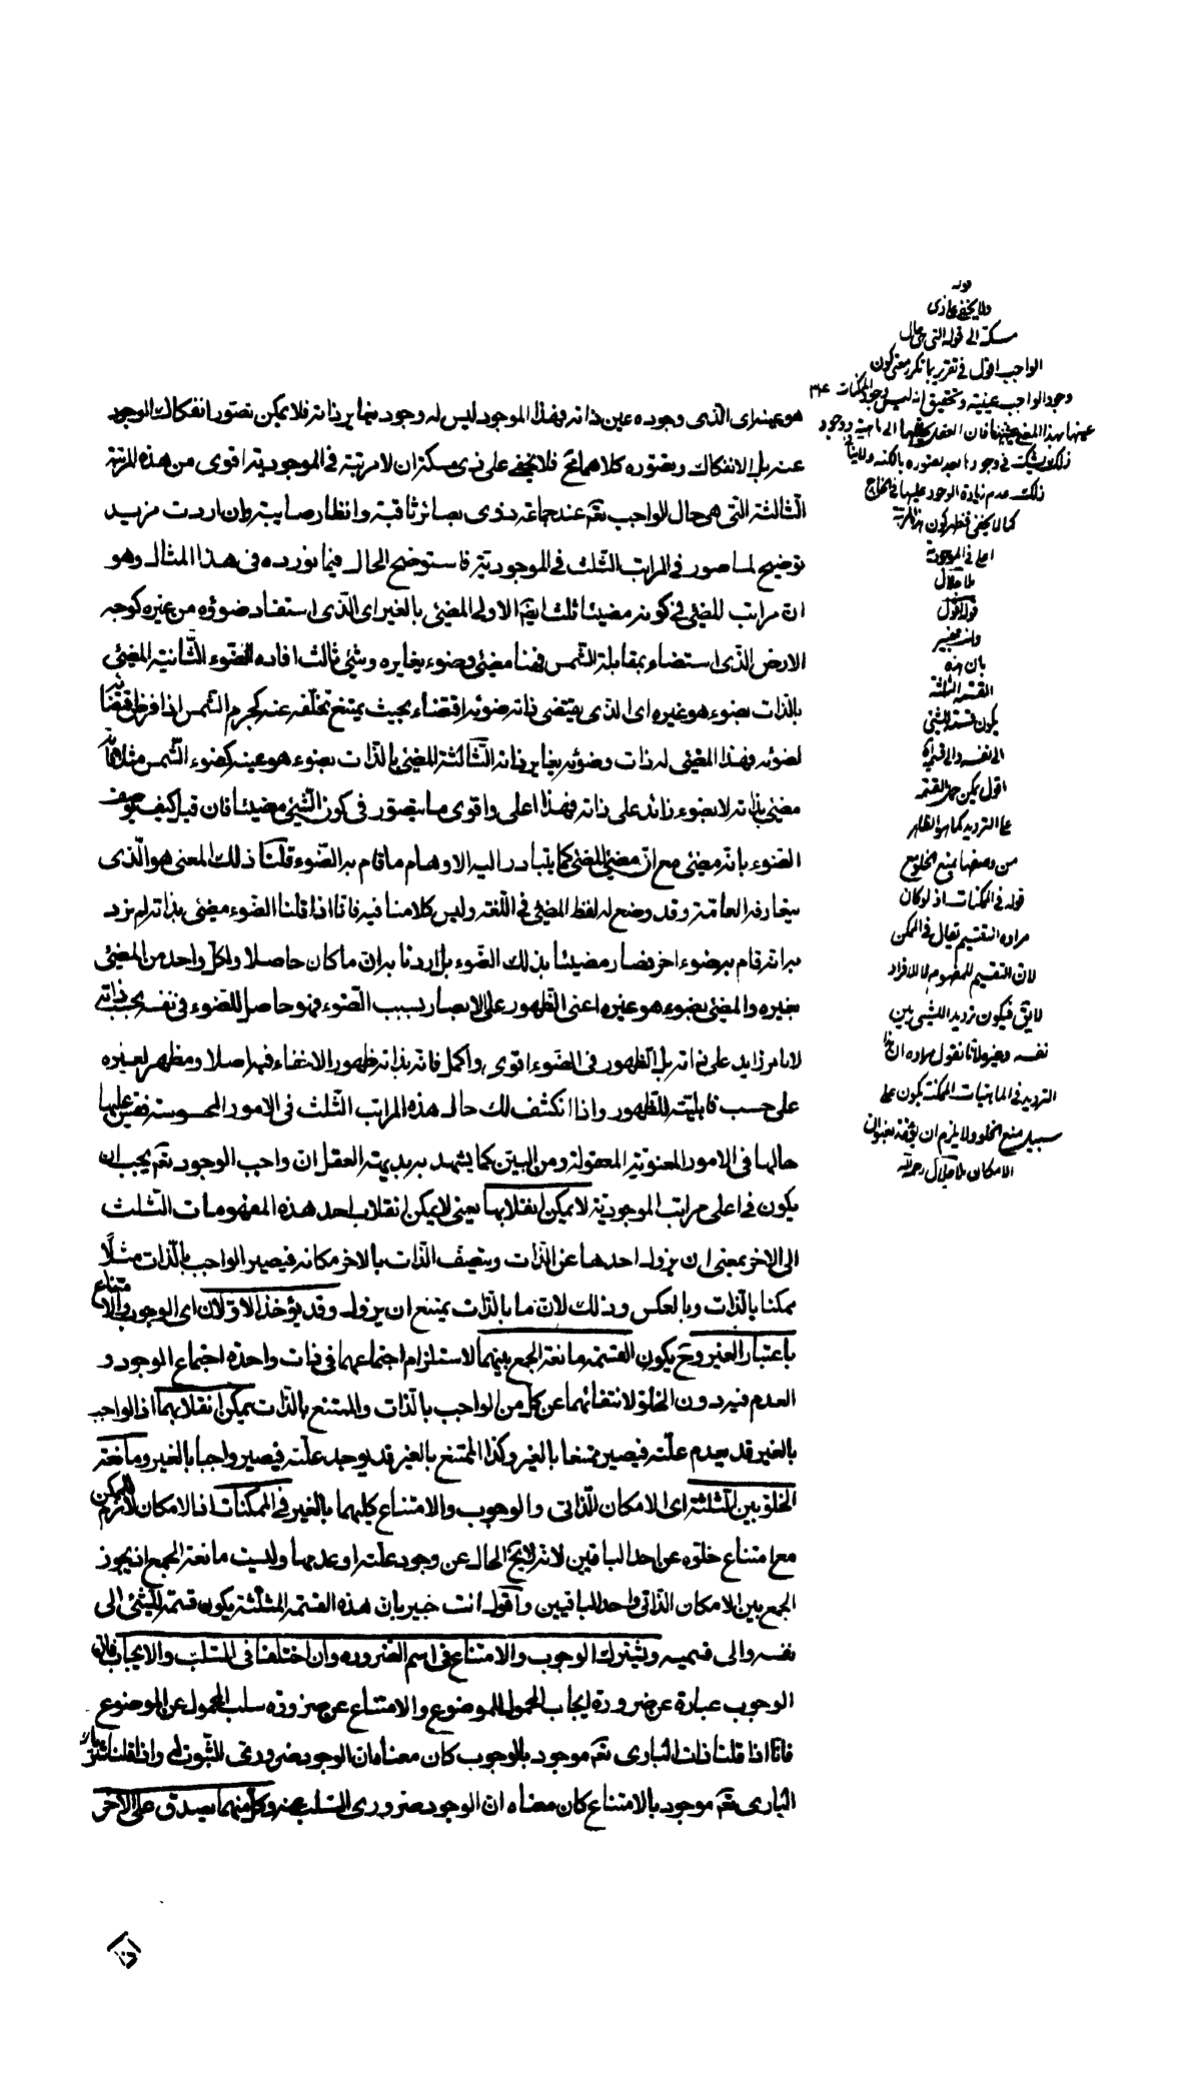 هو عينه اى الذى وجوده عين ذاته فهذا الموجود ليس له وجود يغاير ذاته فلا يمكن تصور انفكاك الوجود
عنه بل الانفكاك وتصوره كلاهما مح فلا يخفى على ذى مسكة ان لا مرتبة فى الموجودية اقوى من هذه المرتبة
الثالثة التى هى حال الواجب تعم عند جماعة ذوى بصائر ثاقبة وانظار صايبة وان اردت مزيد
توضيح لما صور فى المراتب الثلث فى الموجودية فاستوضح الحال فيما نورده فى هذا المثال وهو
ان مراتب المضئ فى كونه مضيئا ثلث ايضم الاولى المضئ بالغير اى الذى استفاد ضوؤه من غيره كوجه
الارض الذى استضاء بمقابلة الشمس فهنا مضئ وضوء يغايره وشئ ثالث افاده الضوء الثانية المضئ
بالذات بضوء هو غيره اى الذى يقتضى ذاته ضوئه اقتضاء بحيث يمتنع تخلفه عنه كجرم الشمس اذا فرض اقتضائه
لضوئه فهذا المضئ له ذات وضوئه يغاير ذاته الثالثة المضئ بالذات بضوء هو عينه كضوء الشمس مثلا فانه
مضئ بذاته لا بضوء زائد على ذاته فهذا اعلى واقوى ما يتصور فى كون الشئ مضيئا فان قيل كيف يوصف
الضوء بانه مضئ مع ان مضئ المضئ كما يتبادر اليه الاوهام ما قام به الضوء قلنا ذلك المعنى هو الذى
يتعارفه العامة وقد وضع له لفظ المضئ فى اللغة وليس كلامنا فيه فانا اذا قلنا الضوء مضئ بذاته لم نرد
به انه قام به ضوء اخر فصار مضيئا بذلك الضوء بل اردنا به ان ما كان حاصلا ولكل واحد من المضئ
بغيره والمضئ بضوء هو غيره اعنى الظهور على الابصار بسبب الضوء فهو حاصل للضوء فى نفسه بحسب ذاته
لا بامر زايد على ذاته بل الظهور فى الضوء اقوى واكمل فانه بذاته ظهور لا خفاء فيه اصلا ومظهر لغيره
على حسب قابليته للظهور واذا انكشف لك حال هذه المراتب الثلث فى الامور المحسوسة فقس عليها
حالها فى الامور المعنوية المعقولة ومن البين كما يشهد به بديهة العقل ان واجب الوجود تعم يجب ان
يكون فى اعلى مراتب الموجودية لا يمكن انقلابها يعنى لا يمكن انقلاب احد هذه المفهومات الثلث
الى الاخر بمعنى ان يزول احدها عن الذات ويتصف الذات بالاخر مكانه فيصير الواجب بالذات مثلا
ممكنا بالذات وبالعكس وذلك لان ما بالذات يمتنع ان يزول وقد يؤخذ الاولان اى الوجوب والامتناع
باعتبار الغير وح يكون القسمة مانعة الجمع بينهما لاستلزام اجتماعهما فى ذات واحدة اجتماع الوجود و
العدم فيه دون الخلو لانتفائهما عن كل من الواجب بالذات والممتنع بالذات يمكن انقلابهما اذ الواجب
بالغير قد يعدم علته فيصير ممتنعا بالغير وكذا الممتنع بالغير قد يوجد علته فيصير واجبا بالغير ومانعة
الخلو بين الثلثة اى الامكان الذاتى والوجوب والامتناع كليهما بالغير فى الممكنات اذ الامكان لازم للممكن
مع امتناع خلوه عن احد الباقيين لانه لا يخ الحال عن وجود علته او عدمها وليست مانعة الجمع اذ يجوز
الجمع بين الامكان الذاتى واحد الباقيين واقول انت خبير بان هذه القسمة المثلثة يكون قسمة للشئ الى
نفسه والى قسميه ويشترك الوجوب والامتناع فى اسم الضرورة وان اختلفا فى السلب والايجاب فان
الوجوب عبارة عن ضرورة ايجاب المحمول للموضوع والامتناع عن ضرورة سلب المحمول عن الموضوع
فانا اذا قلنا ذات البارى تعم موجود بالوجوب كان معناه ان الوجود ضرورى الثبوت له واذا قلنا شريك
البارى تعم موجود بالامتناع كان معناه ان الوجود ضرورى السلب عنه وكل منهما يصدق على الاخر
قوله
ولا يخفى على ذى
مسكة الى قوله التى هى حال
الواجب اقول فى تقرير ما ذكر معنى كون
وجود الواجب عينه وتحقيق انه ليس وجود الممكنات
ذلك عدم زيادة الوجود عليها فى الخارج
كما لا يخفى فظهر كون هذه المرتبة
اعلى فى الموجودية
ملا جلال
قوله اقول
وانت خبير
بان هذه
القسمة المثلثة
يكون قسمة للشئ
الى نفسه والى قسميه
اقول يمكن حمل القسمة
على الترديد كما هو الظاهر
من وصفها بمنع الخلو مع
قوله فى الممكنات اذ لو كان
مراده التقسيم لقال فى الممكن
لان التقسيم للمفهوم لا للافراد
لا يق فيكون ترديد الشئ بين
نفسه وغيره لانا نقول مراده ان هذا
الترديد فى الماهيات الممكنة يكون على
سبيل منع الخلو ولا يلزم ان يؤخذ بعنوان
الامكان ملا جلال رحمه الله